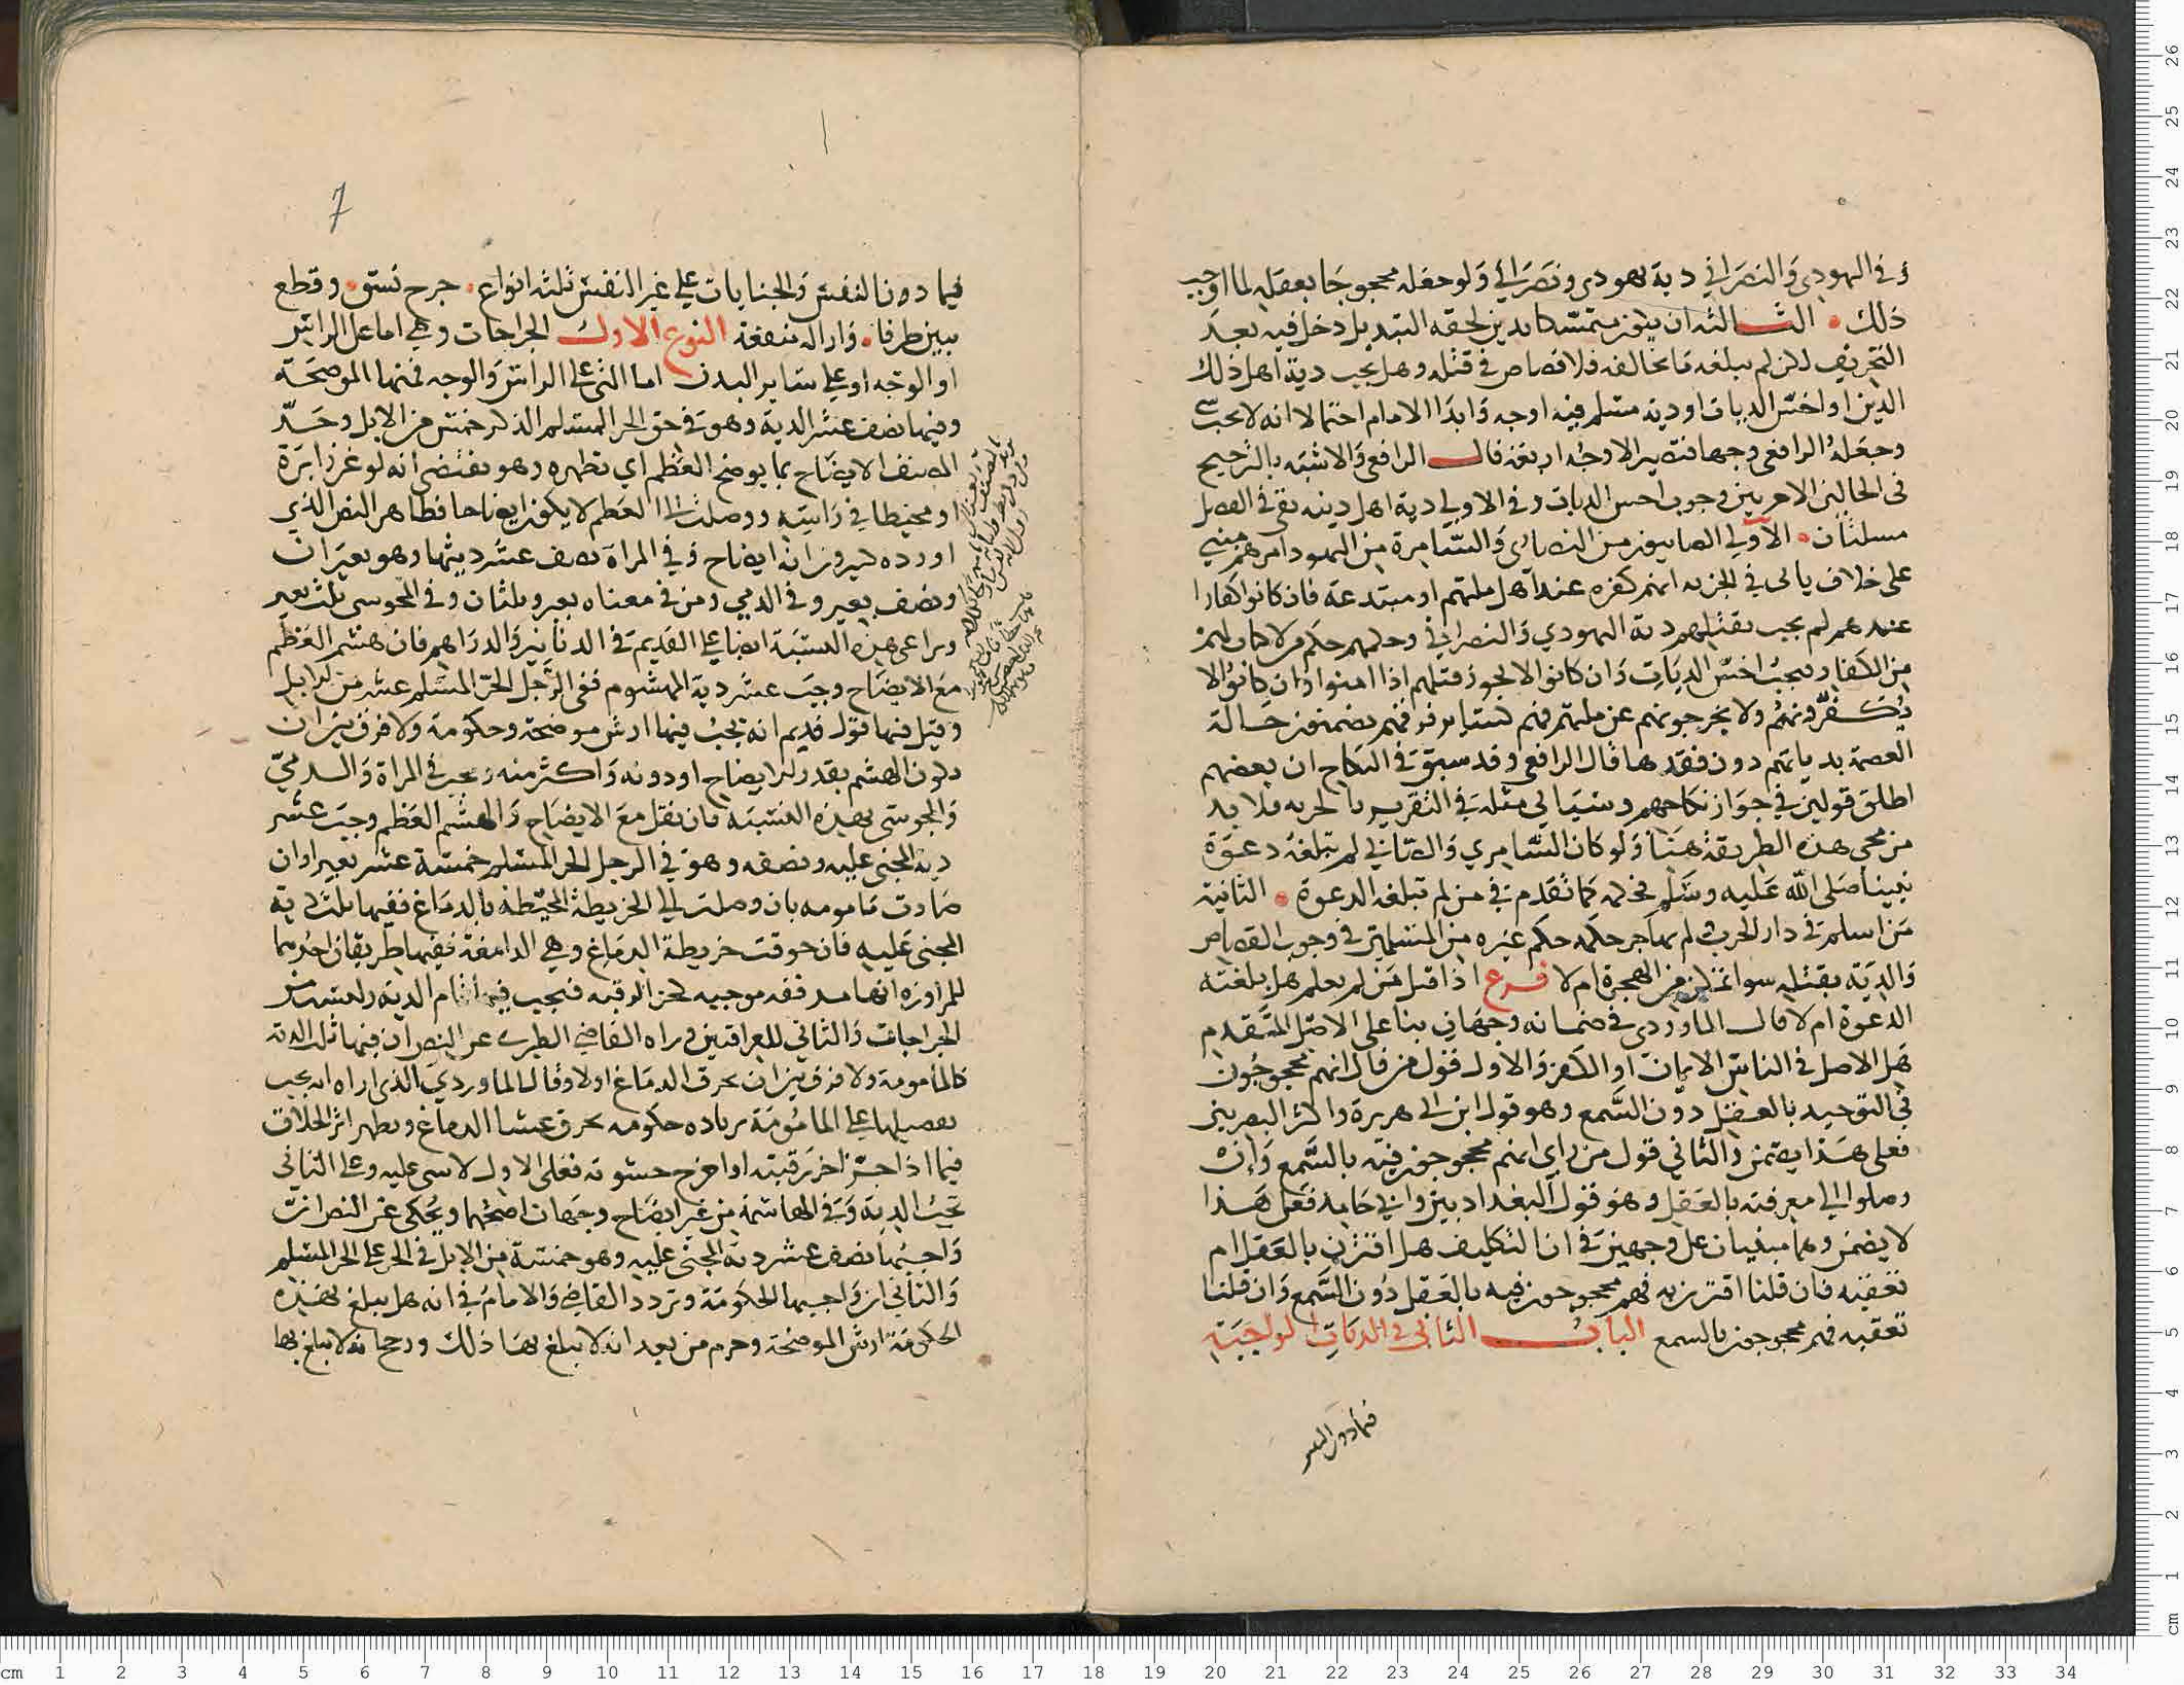 وفي اليهودي والنصراني دية يهودي ونصراني ولو جعله محجوجا بعقله لما اوجب
ذلك الثالثة ان يكون متمسكا بدين لحقه التبديل دخل فيه بعد
التحريف لكن لم يبلغه ما يخالفه فلا قصاص في قتله وهل يجب دية اهل ذلك
الدين او اخس الديات او دية مسلم فيه اوجه وابدا الامام احتمالا انه لا يجب شي
وجعله الرافعي وجها فتصير الاوجه اربعة قال الرافعي والاشبه بالترجيح
في الحالتين الاخريين وجوب اخس الديات وفي الاولى دية اهل دينه بقي في الفصل
مسلتان الاولى الصابيون من النصارى والسامرة من اليهود امرهم مبني
على خلاف ياتي في الجزية انهم كفرة عند اهل ملتهم او مبتدعة فان كانوا كفارا
عندهم لم يجب بقتلهم دية اليهودي والنصراني وحكمهم حكم من لا كتاب لهم
من الكفار ويجب اخس الديات وان كانوا لا يجوز قتلهم اذا امنوا وان كانوا لا
يكفرونهم ولا يخرجونهم عن ملتهم فهم كساير فرقهم يضمنون حالة
العصمة بدياتهم دون فقدها قال الرافعي وقد سبق في النكاح ان بعضهم
اطلق قولين في جواز نكاحهم وسياتي مثله في التقرير بالجزية فلا بد
من مجي هذه الطريقة هنا ولو كان السامري والصابي لم تبلغه دعوة
نبينا صلى الله عليه وسلم فحكمه كما تقدم في من لم تبلغه الدعوة الثانية
من اسلم في دار الحرب ولم يهاجر حكمه حكم غيره من المسلمين في وجوب القصاص
والدية بقتله سوا تمكن من الهجرة ام لا فرع اذا قتل من لم يعلم هل بلغته
الدعوة ام لا قال الماوردي في ضمانه وجهان بنا على الاصل المتقدم
هل الاصل في الناس الايمان او الكفر والاول قول من قال انهم محجوجون
في التوحيد بالعقل دون السمع وهو قول ابن ابي هريرة واكثر البصريين
فعلى هذا يضمن والثاني قول من راى انهم محجوجون فيه بالسمع وان
وصلوا الى معرفته بالعقل وهو قول البغداديين وابي حامد فعلى هذا
لا يضمن وهما مبنيان على وجهين في ان التكليف هل اقترن بالعقل ام
تعقبه فان قلنا اقترن به فهم محجوجون فيه بالعقل دون السمع وان قلنا
تعقبه فهم محجوجون بالسمع الباب الثاني في الديات الواجبة
فيما دون النفس
7
فيما دون النفس والجنايات على غير النفس ثلثة انواع جرح تشق وقطع
يبين طرفا وازالة منفعة النوع الاول الجراحات وهي اما على الراس
او الوجه او على ساير البدن اما التي على الراس والوجه فمنها الموضحة
وفيها نصف عشر الدية وهو في حق الحر المسلم الذكر خمس من الابل وحد
المصنف الايضاح بما يوضح العظم اي تظهره وهو يقتضي انه لو غرز ابرة
او مخيطا في راسه ووصلت الى العظم لا يكون ايضاحا فظاهر النص الذي
اورده كثيرون انه ايضاح وفي المراة نصف عشر ديتها وهو بعيران
ونصف بعير وفي الذمي ومن في معناه بعير وثلثان وفي المجوسي ثلث بعير
ويراعى هذه النسبة ايضا على القديم في الدنانير والدراهم فان هشم العظم
مع الايضاح وجب عشر دية المهشوم ففي الرجل الحر المسلم عشر من الابل
وقيل فيها قول قديم انه يجب فيها ارش موضحة وحكومة ولا فرق بين ان
يكون الهشم بقدر الايضاح او دونه واكثر منه ويجب في المراة والذمي
والمجوسي بهذه النسبة فان نقل مع الايضاح والهشم العظم وجب عشر
دية المجني عليه ونصفه وهو في الرجل الحر المسلم خمسة عشر بعيرا وان
صارت مامومة بان وصلت الى الخريطة المحيطة بالدماغ ففيها ثلث دية
المجني عليه فان خرقت خريطة الدماغ وهي الدامغة ففيها طريقان احدهما
للمراوزة انها مذففة موجبه لحز الرقبة فيجب فيها تمام الدية وليست من
الجراحات والثاني للعراقيين وراه القاضي الطبري عن النص ان فيها ثلث الدية
كالمامومة ولا فرق بين ان يخرق الدماغ اولا وقال الماوردي الذي اراه انه يجب
تفصيلها على المامومة بزيادة حكومة يخرق غشا الدماغ ويظهر اثر الخلاف
فيما اذا حز اخر رقبته او اخرج حشوته فعلى الاول لا شي عليه وعلى الثاني
تجب الدية وفي الهاشمة من غير ايضاح وجهان اصحهما ويحكى عن النص ان
واجبها نصف عشر دية المجني عليه وهو خمسة من الابل في الحر على الحر المسلم
والثاني ان واجبها الحكومة وتردد القاضي والامام في انه هل يبلغ بهذه
الحكومة ارش الموضحة وجزم من بعد انه لا يبلغ بها ذلك ورجحا انه لا يبلغ بها